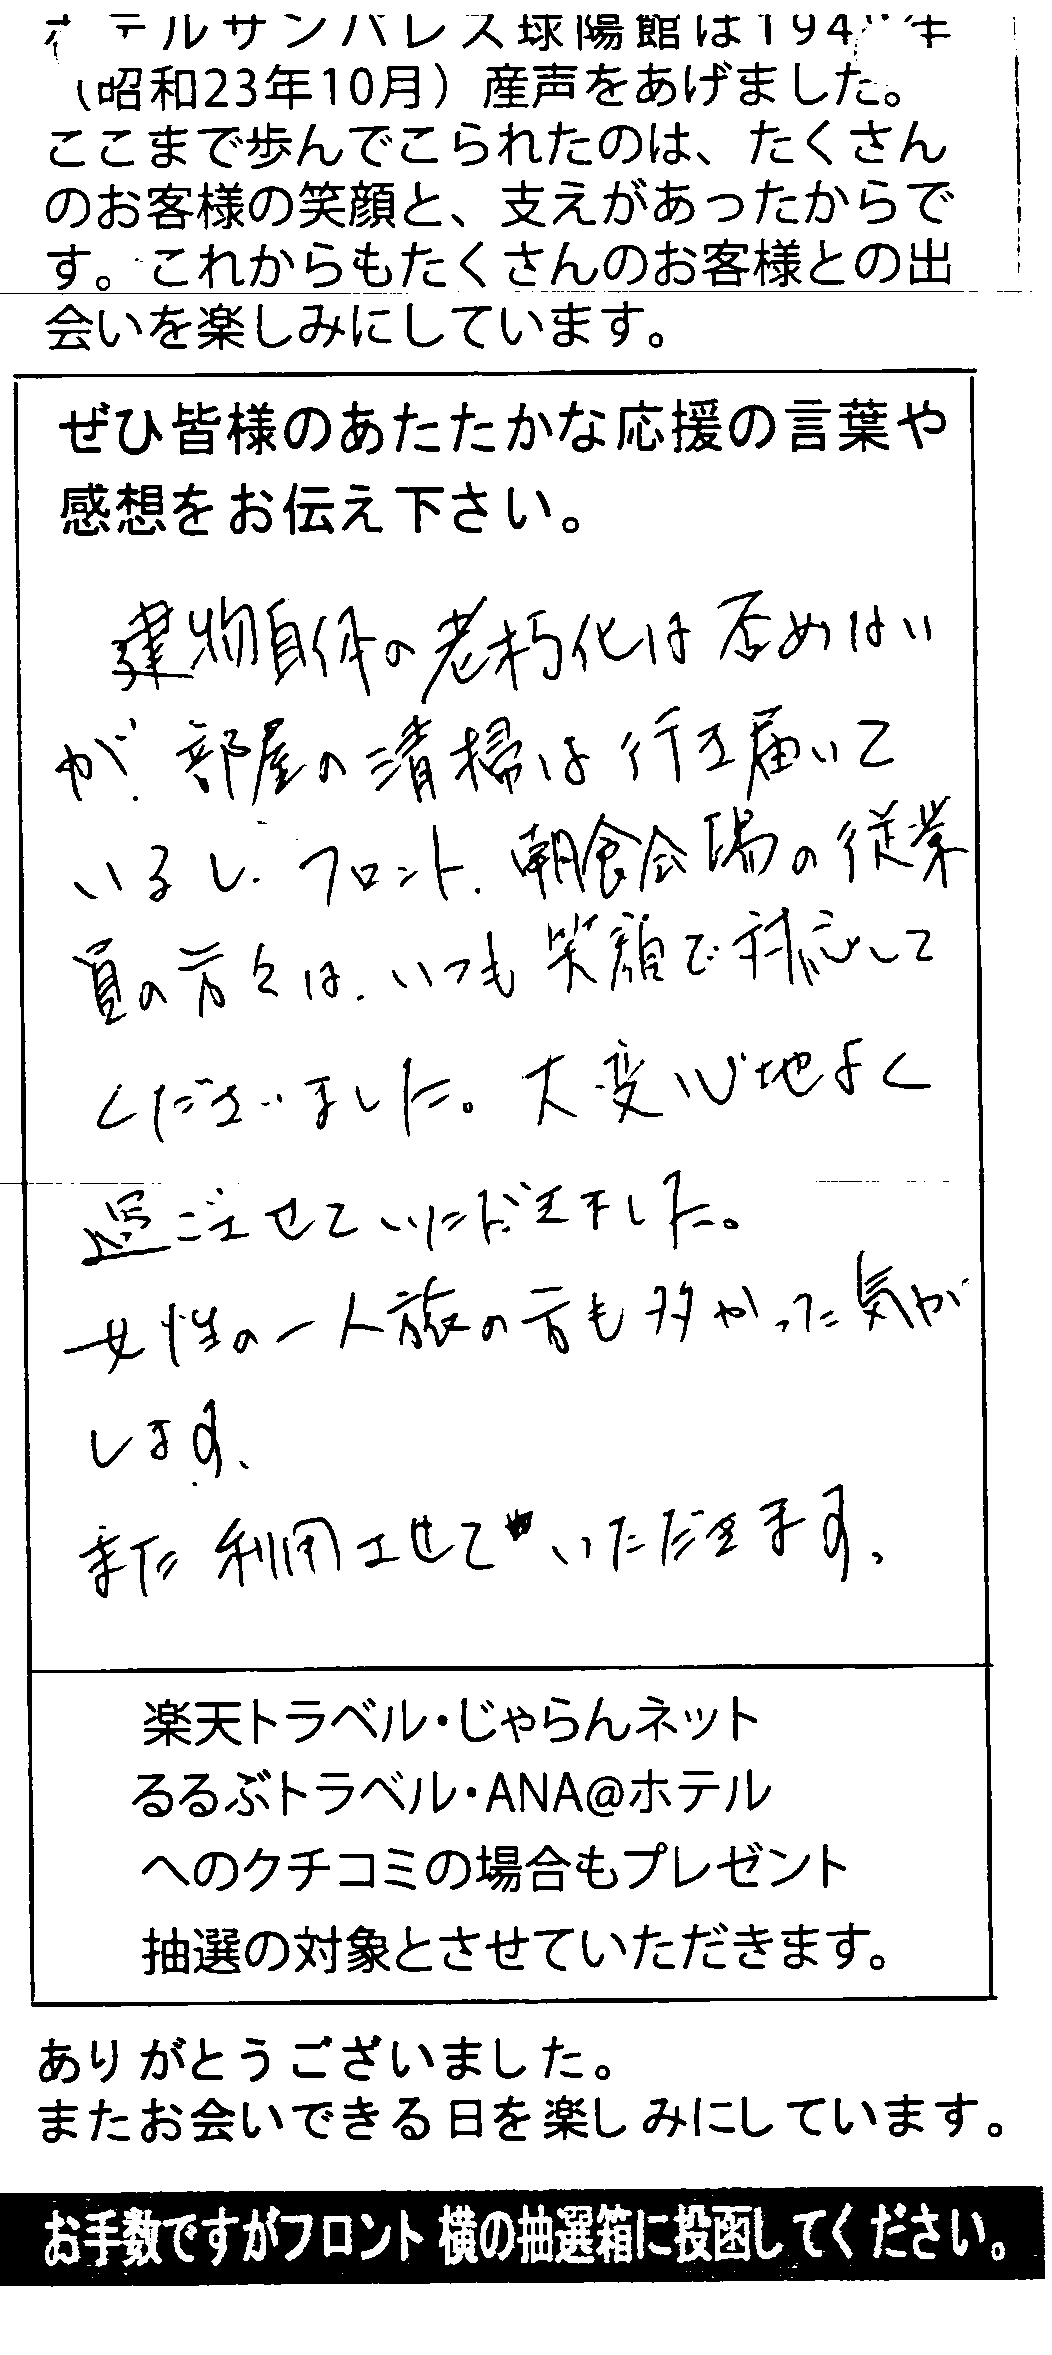 テルサンパレス球陽館は194 年
（昭和23年10月）産声をあげました。
ここまで歩んでこられたのは、たくさん
のお客様の笑顔と、支えがあったからで
す。これからもたくさんのお客様との出
会いを楽しみにしています。
ぜひ皆様のあたたかな応援の言葉や
感想をお伝え下さい。
建物自体の老朽化は否めない
が、部屋の清掃は行き届いて
いるし、フロント、朝食会場の従業
員の方々は、いつも笑顔で対応して
くださいました。大変心地よく
過ごさせていただきました。
女性の一人旅の方も多かった気が
します。
また利用させていただきます。
楽天トラベル・じゃらんネット
るるぶトラベル・ANA@ホテル
へのクチコミの場合もプレゼント
抽選の対象とさせていただきます。
ありがとうございました。
またお会いできる日を楽しみにしています。
お手数ですがフロント横の抽選箱に投函してください。